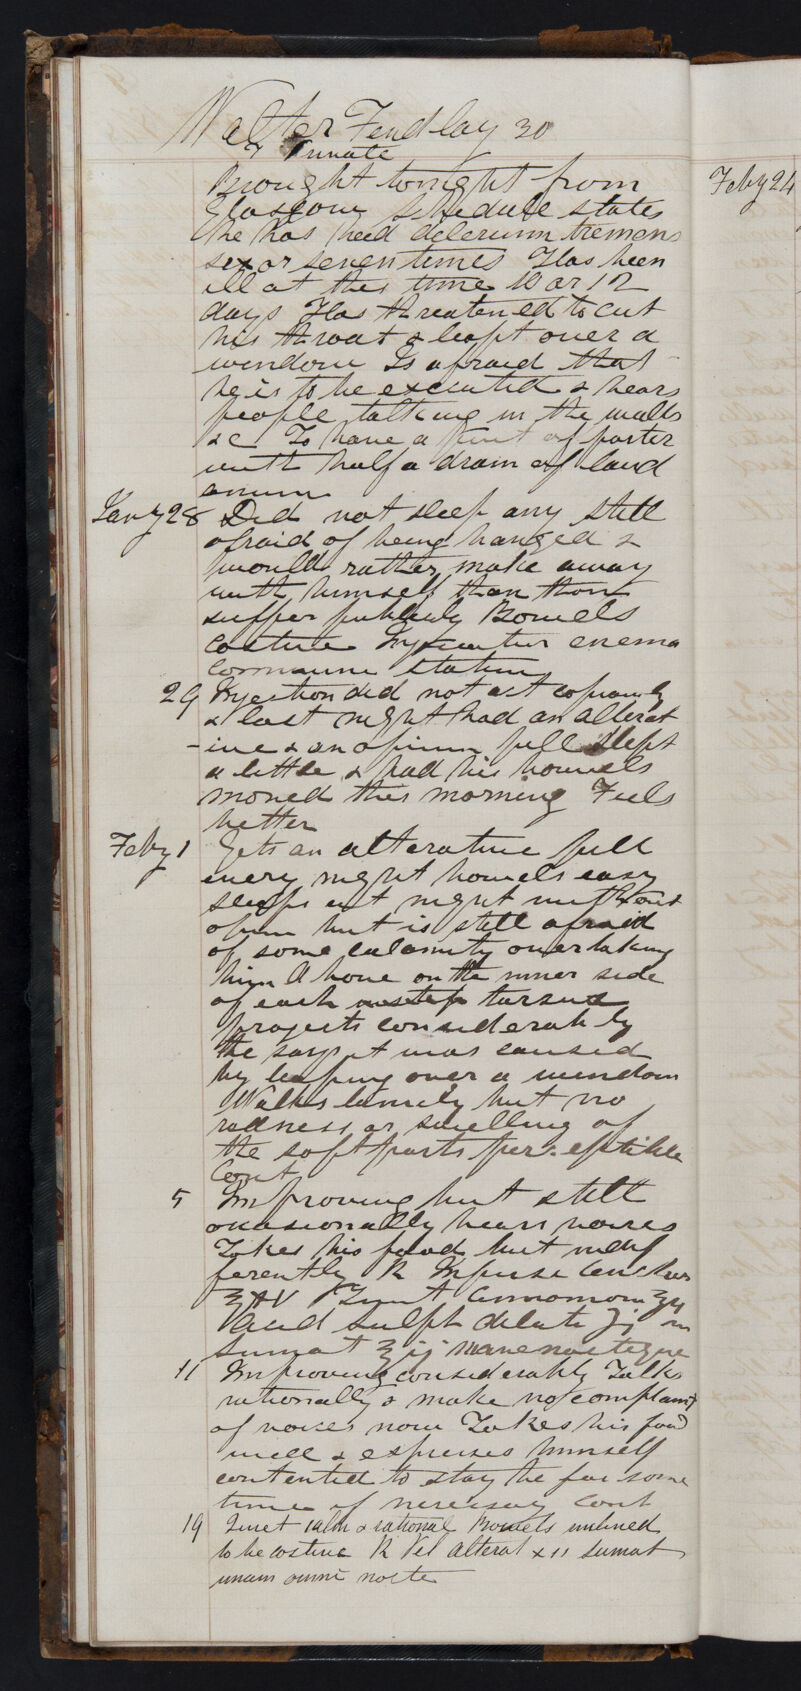 Walter Findlay 30
Private
Brought tonight from
Glasgow Schedule states
he has had delerium tremens
six or seven times Has been
ill at this time 10 or 12
days Has threatened to cut
his throat & leapt over a
window Is afraid that
he is to be executed & hears
people talking in the walls
&c To have a pint of porter
with half a dram of laud
anum
Jany 28 Did not sleep any still
afraid of being hanged &
would rather make away
with himself than thou
suffer publicly Bowels
costive Injiciatur enema
commune statim
29 Injection did not act copiously
& last night had an alterat
-ive & an opium pill Slept
a little & had his bowels
moved this morning Feels
better
Feby 1 Gets an alterative pill
every night bowels easy
sleeps at night without
opium but is still afraid
of some calamity overtaking
him A bone on the inner side
of each tarsus
projects considerably
He says it was caused
by leaping over a window
Walks lamely but no
redness or swelling of
the soft parts perceptible
Cont
5 Improving but still
occasionally hears noises
Takes his food but indif
ferently R Infusi
Tinct Cinnamomi
Acid Sulph dilute
Sumat mane nocteque
11 Improving considerably Talks
rationally & make no complaint
of voices now Takes his food
well & expresses himself
contented to stay he for some
time if necessary Cont
19 Quiet calm & rational Bowels inclined
to be costive R Pil Alterat x ii Sumat
unam omni nocte
Feby 24